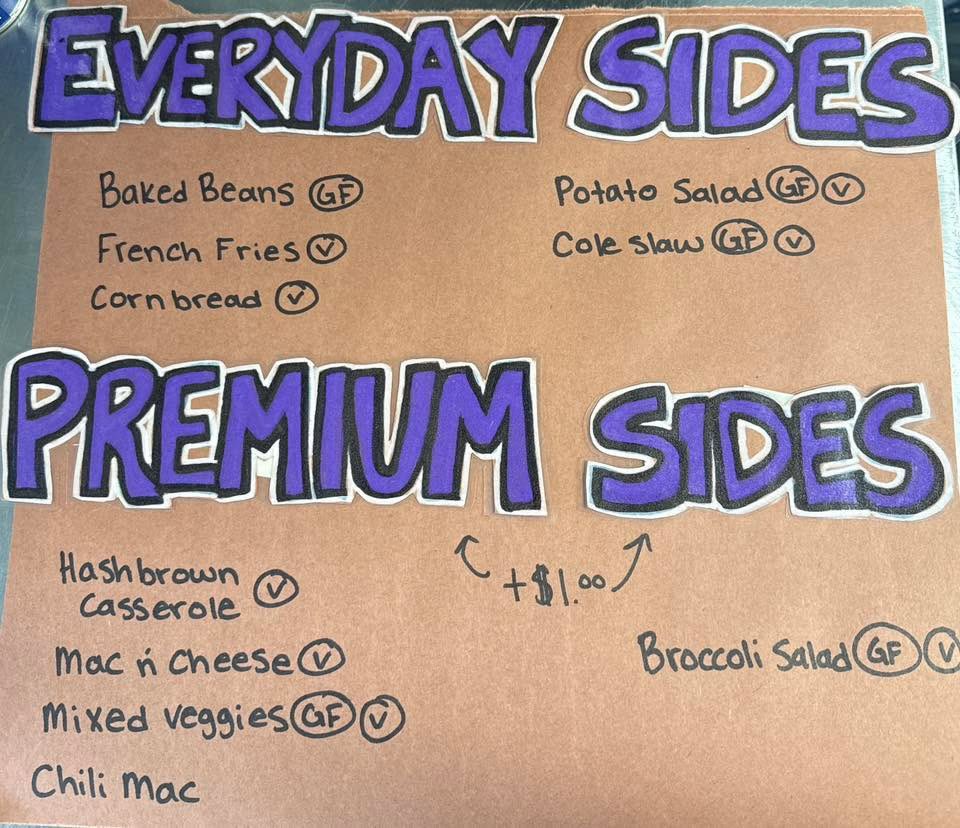 EVERYDAY SIDES
Baked Beans GF
French Fries V
Cornbread V
Potato Salad GF V
Cole slaw GF V
PREMIUM SIDES
+$1.00
Hashbrown
Casserole V
Mac n' Cheese V
Mixed veggies GF V
Chili Mac
Broccoli Salad GF V